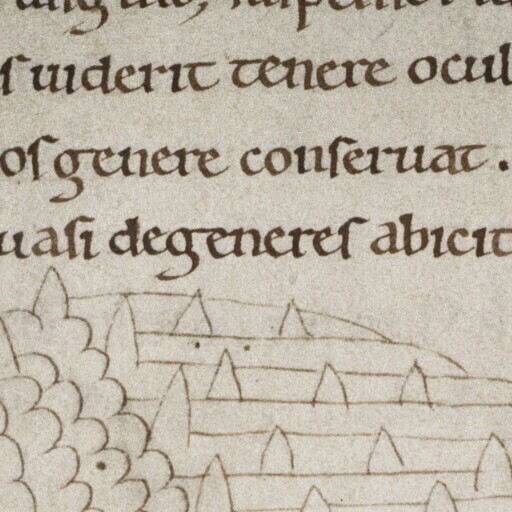 ſ uiderit tenere ocul
oſ genere conſeruat .
uaſi degenereſ abicit